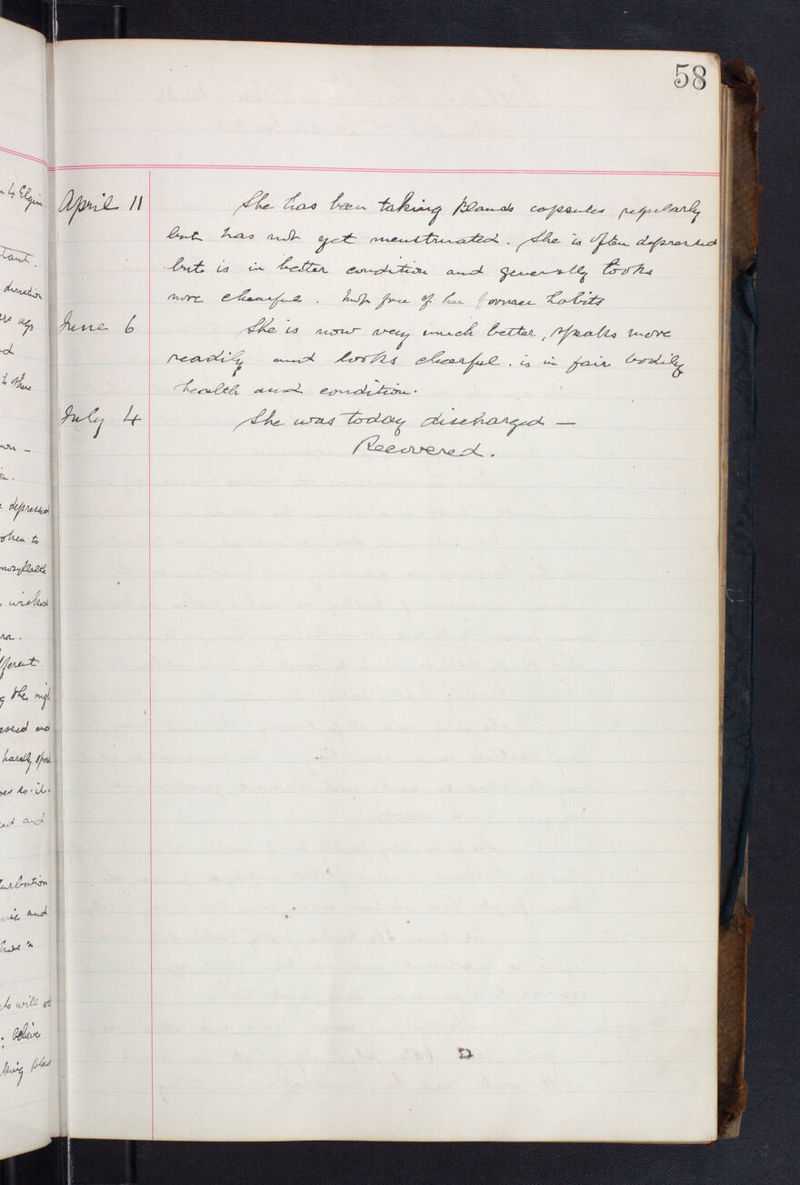 58
April 11 She has been taking Blauds capsules regularly
but has not yet menstruated. She is often depressed
but is in better condition and generally looks
more cheerful. Not free of her former habits
June 6 She is now very much better, speaks more
readily and looks cheerful. is in fair bodily
health and condition.
July 4 She was today discharged —
Recovered.
4 Elgin
ago
depressed
wished
hardly
and
and
will